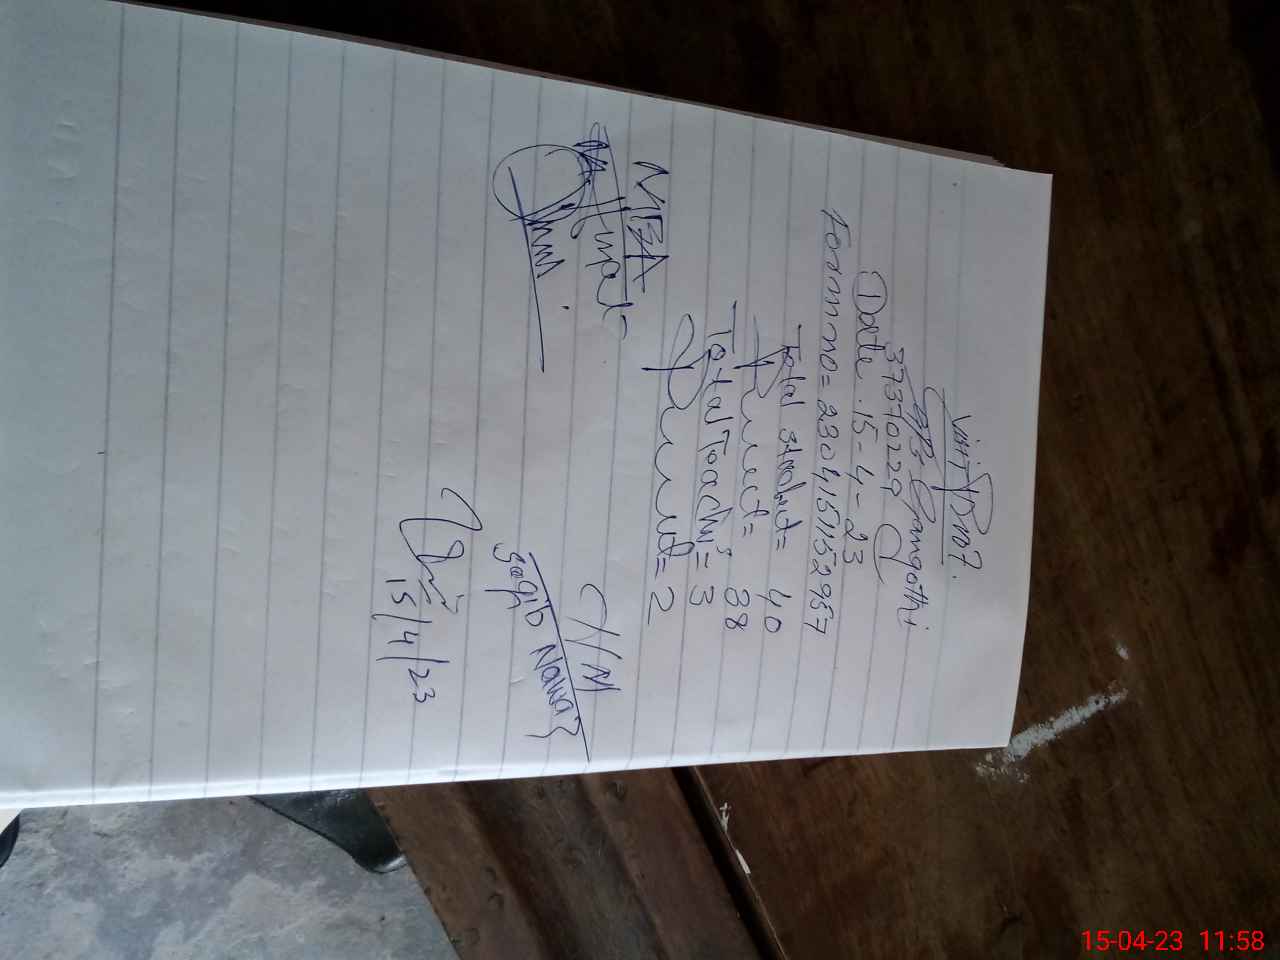 Visit Proof.
GPS. Gangothi
37370229
Date. 15-4-23
Form no = 230415152957
Total Student = 40
Present = 38
Total Teachs = 3
Present = 2
MBA
H/M
Saqib Nawaz
15/4/23
15-04-23 11:58